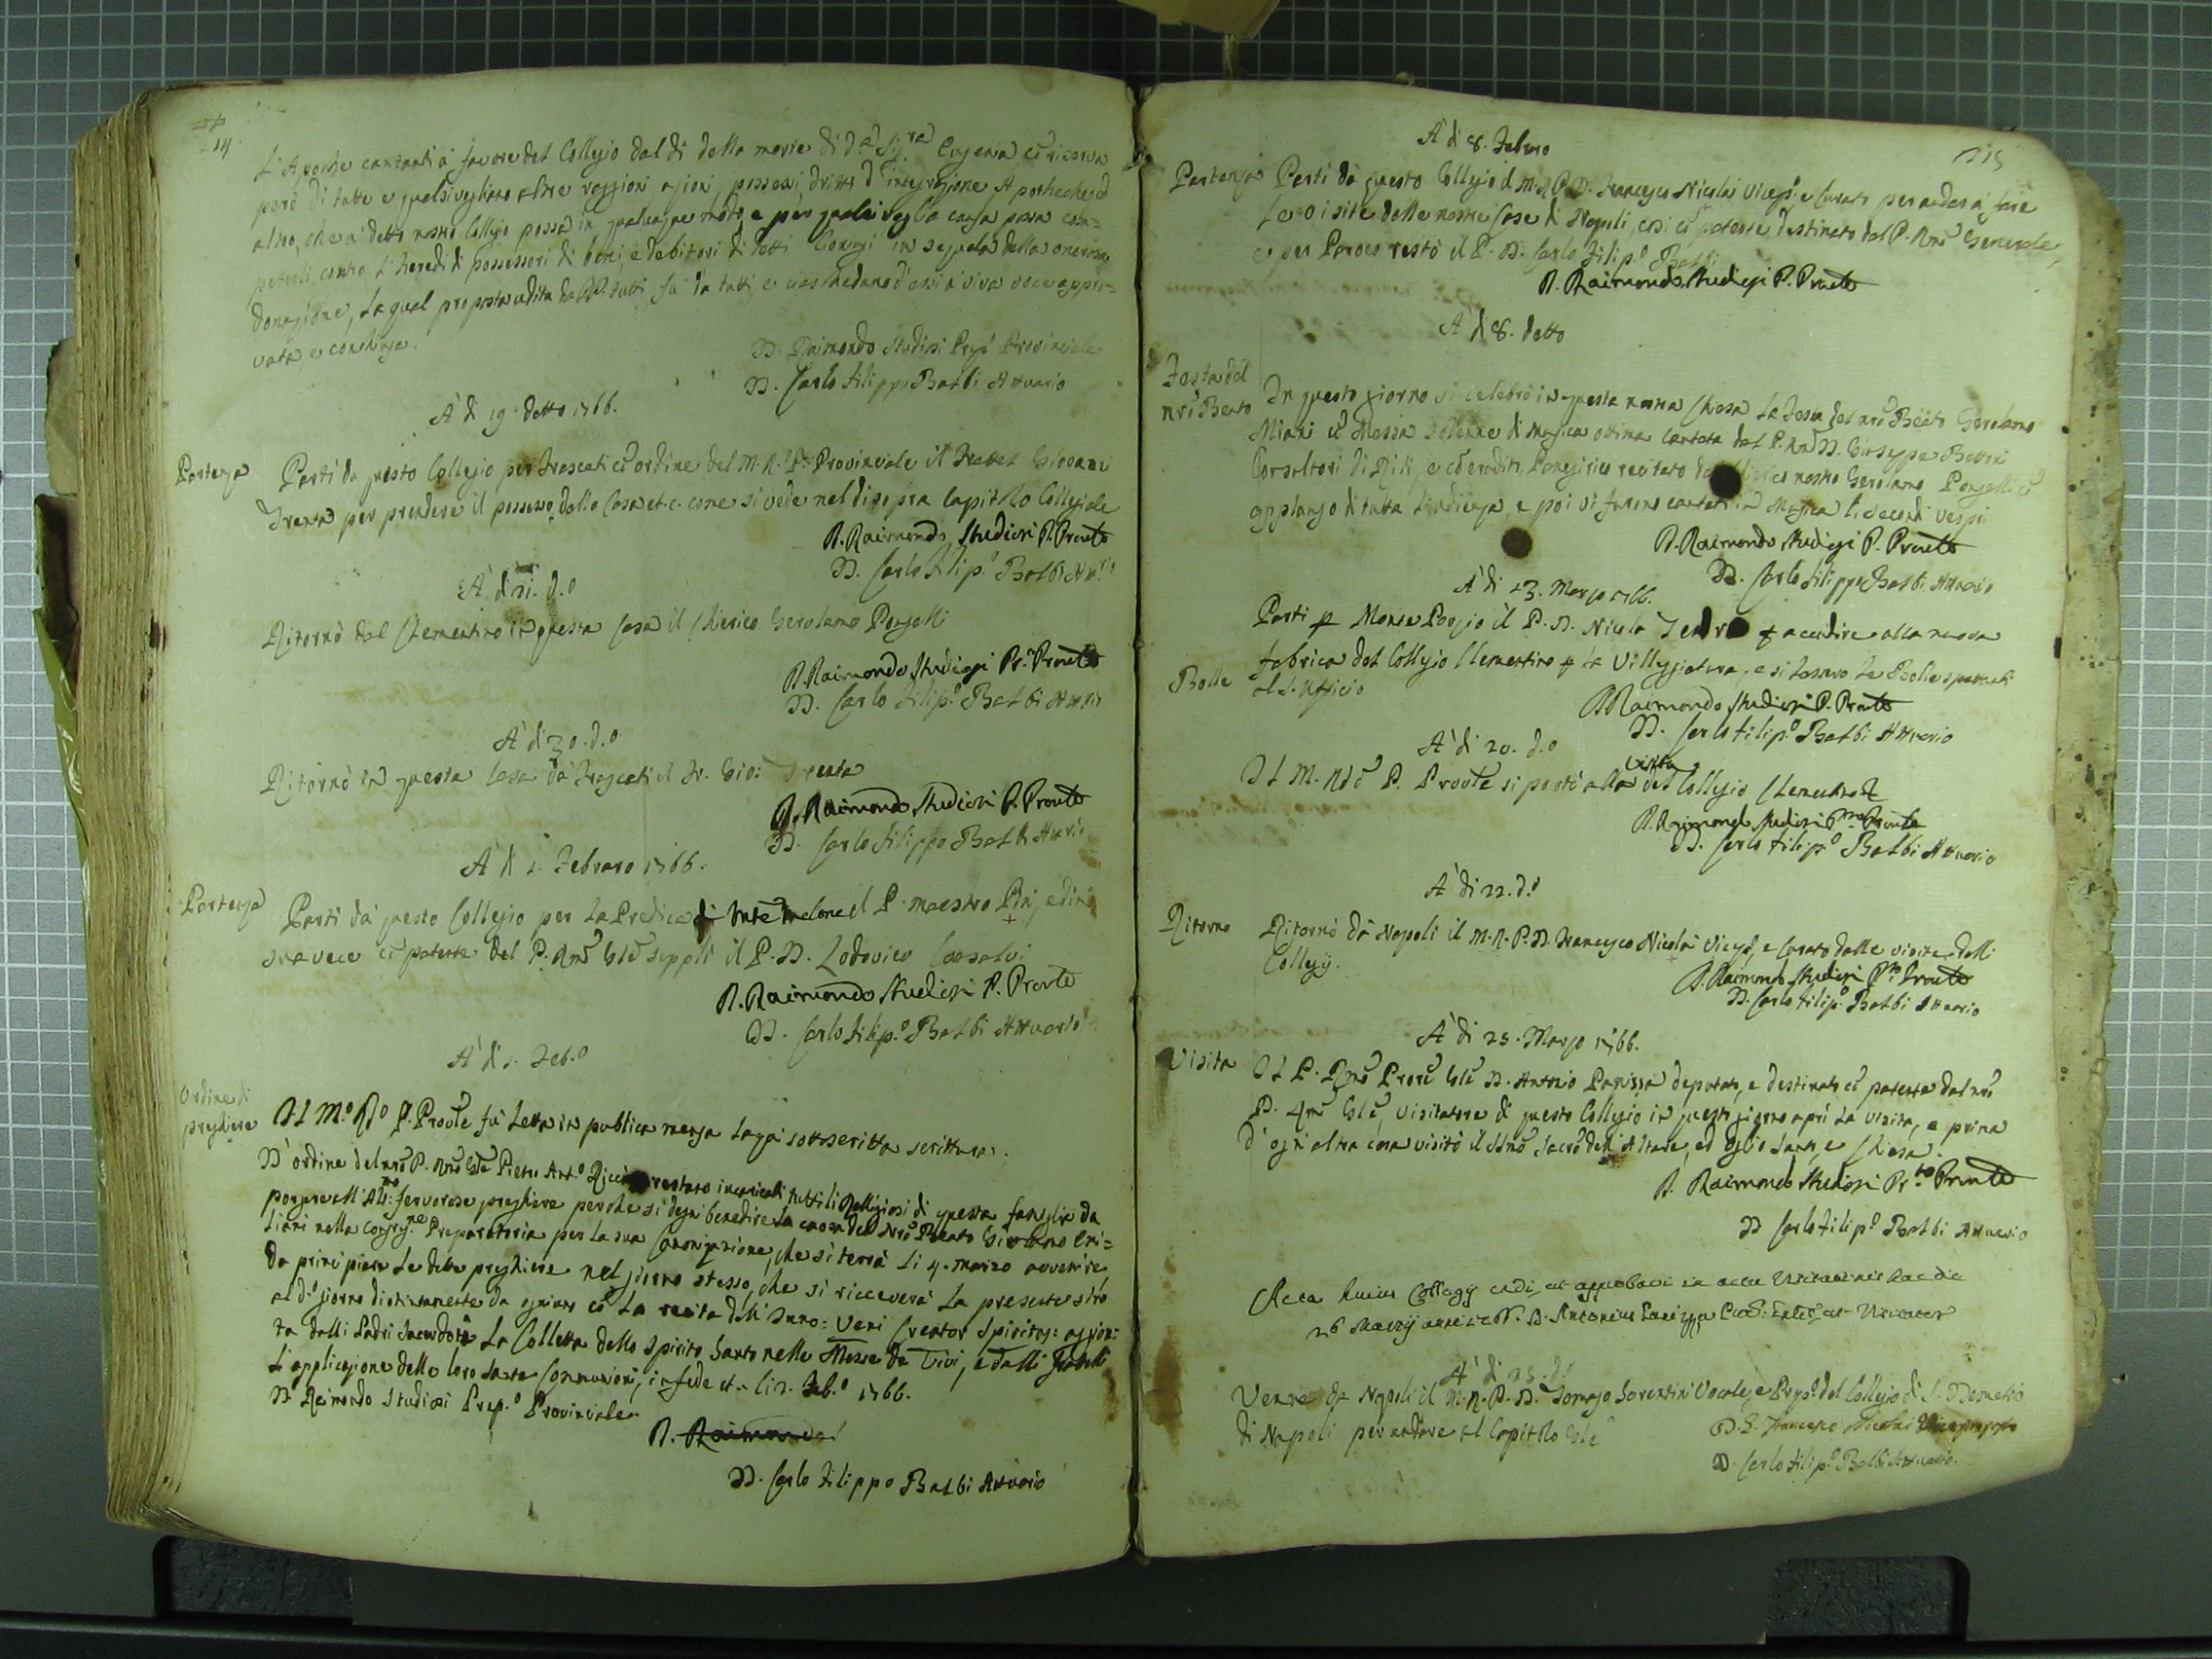 14
L'Apoche cantanti à favore del Collegio dal dì della morte di d.a Sig.ra Eugenia, cũ riserva
però di tutte e qualsivogliano altre raggioni azioni, possessi, dritto d'integrazione
altro, che à detto nostro Collegio possa in qualunque modo, e per qualsivoglia causa possa com=
petersi contro l'heredi di possessori di beni, e debitori di detti Coniugi in sequela della onerosa
donazione, la qual proposta udita da PP. tutti, fù da tutti e ciascheduno d'essi à viva voce appro=
vata e conchiusa.
D. Raimondo Studiosi Prep.o Provinciale
D. Carlo Filippo Balbi Attuario
A' dì 19. detto 1766.
Partenza Partì da questo Collegio per Frascati cũ ordine del M. R. P. Provinciale il Fratel Giovani
Trenta per prendere il possesso della Casa et.c. come si vede nel di sopra Capitolo Collegiale
D. Raimondo Studiosi P. Provle
D. Carlo Filip.o Balbi Att.rio
A' dì 21. d.o
Ritornò dal Clementino in questa Casa il Chierico Gerolamo Ponzelli
D. Raimondo Studiosi Pr. Provle
D. Carlo Filip.o Balbi Att.rio
A' dì 30. d.o
Ritornò in questa Casa da Frascati il Fr. Gio: Trenta
D. Raimondo Studiosi P. Provle
D. Carlo Filippo Balbi Att.rio
A' dì 1. Febraro 1766.
Partenza Partì da questo Collegio per la Predica di il P. maestro ed in
sua vece cũ patente del P. Rmõ Glẽ supplì il P. D. Lodovico
D. Raimondo Studiosi P. Provle
D. Carlo Filip.o Balbi Attuario
A' dì 2. Feb.o
Ordine di
preghiere Il M.o R.do P. Provle fù letta in publica mensa la quì sottoscritta scrittura.
D'ordine del nrõ P. Rmõ Glẽ Pietro Ant.o Ricci restano incaricati tutti li Religiosi di questa famiglia da
porgere all'Alt.mo fervorose preghiere perche si degni benedire la causa del nrõ Beato Girolamo Emi=
liani nella Congreg.ne Preparatoria per la sua Canonizazione, che si terrà li 4. marzo avvenire
da principiare le dette preghiere nel giorno stesso, che si riceverà la presente stro
al d.o giorno distintamente da ogniuno cõ la recita dell'Inno: Veni Creator Spiritus: aggion:
ta dalli Padri Sacerdoti la Colletta dello Spirito Santo nelle Messe de Vivi, e dalli Fratelli
l'applicazione delle loro Sante Communioni, in fede et.c. li 2. Feb.o 1766.
D. Raimondo Studiosi Prep.o Provinciale
D. Raimondo
D. Carlo Filippo Balbi Attuario
115
A' dì 8. Febraro
Partenza Partì da questo Collegio il M. R. P. D. Francesco Nicolai Vicep.o e Curato per andar à fare
le visite delle nostre Case di Napoli, così cũ patente destinato dal P. Rmõ Generale,
e per Paroco restò il P. D. Carlo Filip.o Balbi
D. Raimondo Studiosi P. Provle
A' dì 8. detto
Festa del
nrõ Beato In questo giorno si celebrò in questa nostra Chiesa la Festa del nrõ Beato Gerolamo
Miani cõ Messa Solenne di Musica ottima cantata dal P. Rmõ D. Giuseppe Bettoni
Consultori di Riti, e cõ erudito Panegirico recitato dal nostro Gerolamo Ponzelli cõ
applauso di tutta l'udienza, e poi vi furono cantati in Musica li Secondi Vespri
D. Raimondo Studiosi P. Provle
D. Carlo Filippo Balbi Attuario
A' dì 13. Marzo 1766.
Partì p Monte Porzio il P. D. Nicola p accudire alla nuova
fabrica del Collegio Clementino p la Villeggiatura, e si lessero le Bolle spettanti
Bolle al S. Officio
D. Raimondo Studiosi P. Provle
D. Carlo Filip.o Balbi Attuario
A' dì 20. d.o
Il M. Rdõ P. Provle si portò alla visita del Collegio Clementino
D. Raimondo Studiosi P. Provle
D. Carlo Filip.o Balbi Attuario
A' dì 22. d.o
Ritorno Ritornò da Napoli il M. R. P. D. Francesco Nicolai Vicep.o, e Curato dalle visite delli
Collegij.
D. Raimondo Studiosi P. Provle
D. Carlo Filip.o Balbi Attuario
A' dì 25. Marzo 1766.
Visita Il P. Rmõ Procẽ Glẽ D. Antonio Panizza deputato, e destinato cũ patente dal nrõ
P. Rmõ Glẽ, Visitatore di questo Collegio in questo giorno aprì la visita, e prima
d'ogni altra cosa visitò il SSmõ Sacrõ dell'Altare, ed oglio Santo, e Chiesa.
D. Raimondo Studiosi P. Provle
D. Carlo Filip.o Balbi Attuario
Acta huius Collegij vidi, et approbavi in actu Visitationis hac die
26 Martij anni 1766. D. Antonius Panizza Proc. Gnlis et Visitator
A' dì 25. d.o
Venne da Napoli il M. R. P. D. Tomaso Sorentini Vocale, e Prep.o del Collegio di S. Demetrio
di Napoli per andare al Capitolo Glẽ D. G. Francesco Nicolai Vicepreposto
D. Carlo Filip.o Balbi Attuario.